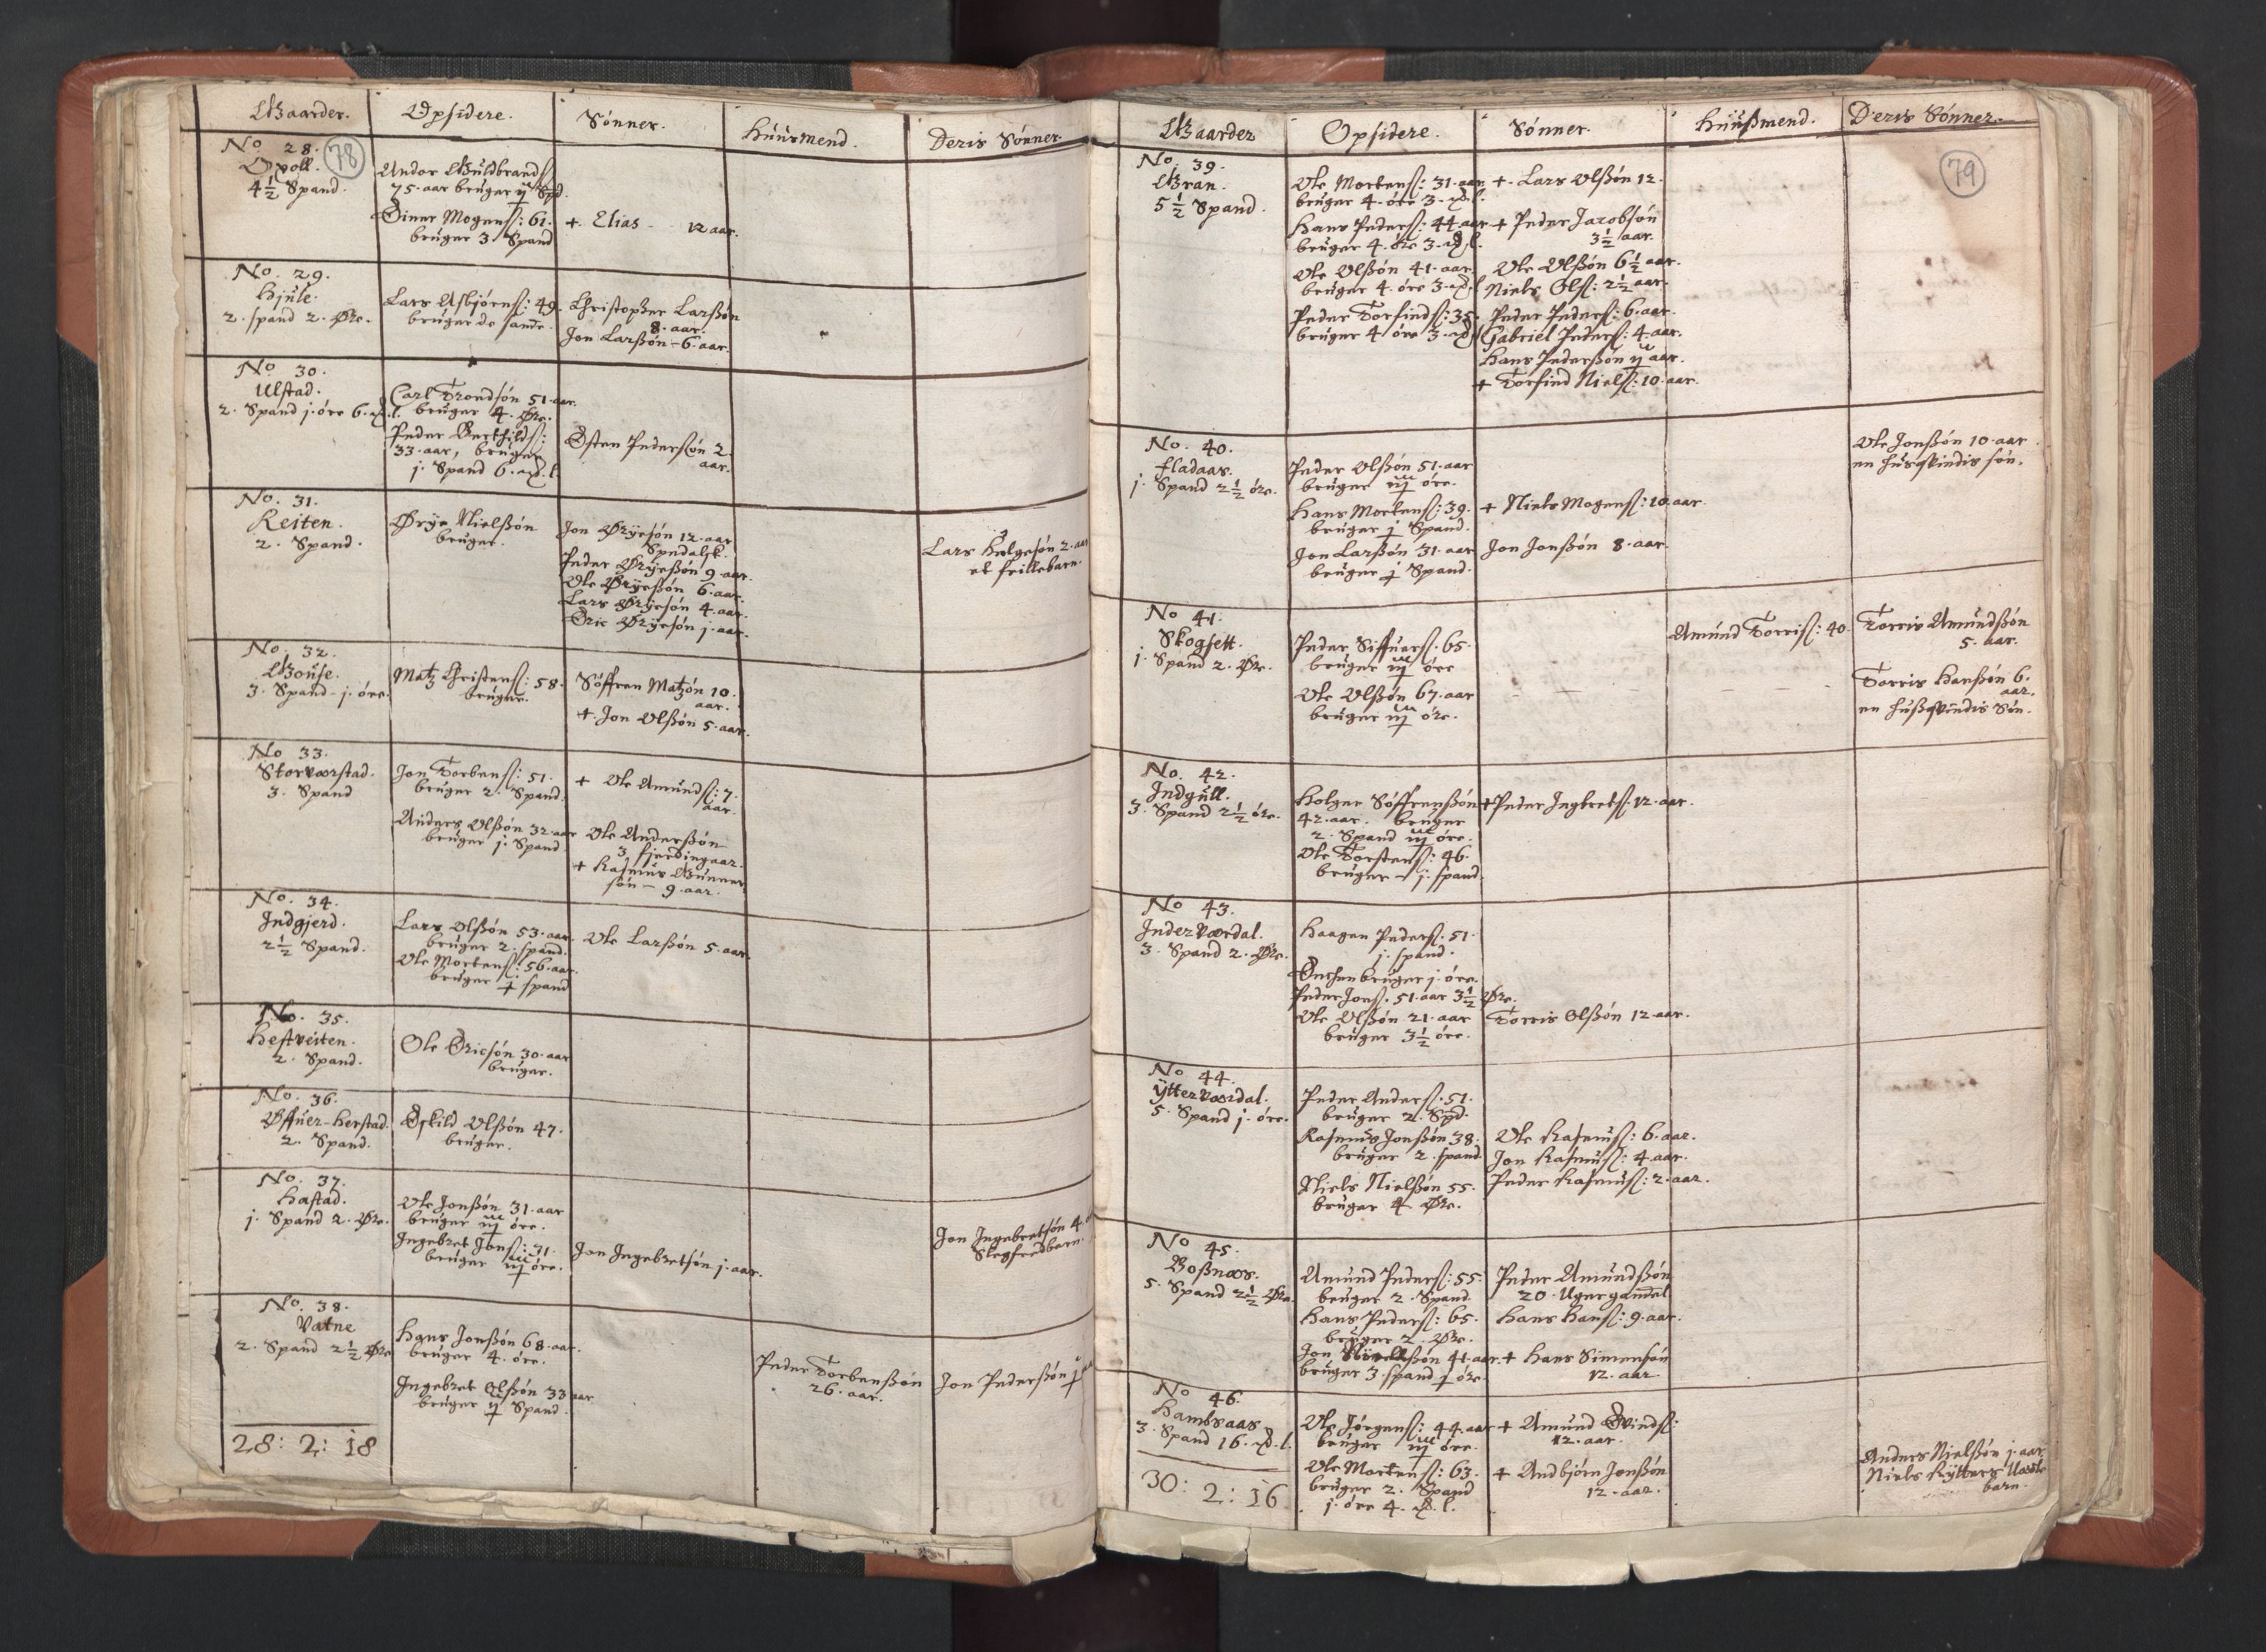 Gaarder. Opsidere. Sønner. Huusmend. Deris Sønner.
No. 28.
78
Opøll.
4½ Spand.
Ander Guldbrandß
75. aar bruger ij Spd.
Einer Mogenß: 61.
bruger 3. Spand
+. Elias - 12 aar.
No. 29.
Hjule.
2. spand 2. Øre.
Lars Asbjørnß: 49.
bruger de samme.
Christopher Larßøn
8. aar.
Jon Larßøn - 6. aar.
No. 30.
Ulstad.
2. Spand j. øre 6. ℔. l.
Carl Trondsøn 51. aar.
bruger 4. Øre.
Peder Berthildß:
33. aar, bruger
j. Spand 6. ℔. l
Østen Pedersøn 2.
aar.
No. 31.
Reiten.
2. Spand.
Ørje Nielßøn
bruger.
Jon Ørjesøn 12. aar
Spedalsk.
Peder Ørjeßøn 9. aar.
Ole Ørjeßøn 6. aar.
Lars Ørjesøn 4. aar.
Eric Ørjesøn j. aar.
Lars Helgesøn 2. aar
et frillebarn.
No. 32.
Gouse.
3. Spand - j. øre.
Matz Christenß: 58.
bruger.
Søffren Matzøn 10.
aar.
+. Jon Olßøn 5. aar.
No. 33.
Storværstad.
3. Spand
Jon Torbenß: 51.
bruger 2. Spand.
Anders Olßøn 32. aar
bruger j. Spand
+ Ole Amundß: 7.
aar.
Ole Anderßøn
3 fierdingaar.
+ Rasmus Gunner
søn - 9. aar.
No. 34.
Indgjerd.
2½ Spand.
Lars Olßøn 53. aar.
bruger 2. spand.
Ole Mortenß: 56. aar.
bruger ½ spand
Ole Larßøn 5. aar
No. 35.
Hestveiten.
2. Spand.
Ole Ericsøn 30. aar
bruger.
No. 36.
Øffuer-Herstad.
2. Spand.
Eskild Olßøn 47.
bruger.
No. 37.
Hastad.
j. Spand 2. Øre.
Ole Jonßøn 31. aar
bruger iij øre.
Ingebret Jonß: 31.
bruger iij øre.
Jon Ingebretsøn j. aar.
Jon Ingebretsøn 4.
Slegfredbarn.
No. 38.
Vatne
2. Spand 2½ Øre
Hans Jonßøn 68. aar.
bruger 4. øre.
Ingebret Olßøn 33 aar
bruger ij Spand.
Peder Torbenßøn
26. aar.
Jon Pederßøn
28: 2: 18
Gaarder Opsidere. Sønner. Huußmend. Deris Sønner.
79
No. 39.
Gran.
5½ Spand.
Ole Mortenß: 31. aar
bruger 4. øre 3. ℔. l.
Hans Pederß: 44 aar
bruger 4. øre 3. ℔. l.
Ole Olßøn 41. aar.
bruger 4. øre 3. ℔. l
Peder Torfindß: 35.
bruger 4 øre 3. ℔
+. Lars Olßøn 12.
+ Peder Jacobsøn
3½ aar.
Ole Olßøn 6½ aar.
Niels Olß: 2½ aar.
Peder Pederß: 6. aar.
Gabriel Pederß: 4. aar.
Hans Pederßøn ij aar.
+ Torfind Nielß: 10. aar.
No. 40.
Fladaas.
j. Spand 2½ øre.
Peder Olßøn 51. aar
bruger iij øre.
Hans Mortenß: 39.
bruger ½ Spand.
Jon Larßøn 31. aar
bruger ½ Spand.
+ Niels Mogenß: 10. aar.
Jon Jonßøn 8. aar.
Ole Jonßøn 10. aar
en husqvindis søn.
No 41.
Skogsett.
j. Spand 2. Øre.
Peder Siffuerß. 65.
bruger iij øre
Ole Olßøn 67. aar
bruger iij øre.
Amund Torrisß: 40.
Torris Amundßøn
5. aar.
Torris Hanßøn 6.
aar.
en hußqvindis Søn.
No. 42.
Indgull.
3. Spand 2½ øre.
Holger Søffrenßøn
42. aar. bruger
2. Spand iij øre.
Ole Torstenß: 46.
bruger - j. spand.
+ Peder Ingbretß: 12. aar.
No 43.
Inderværdal.
3. Spand 2. Øre.
Haagen Pederß. 51.
j. spand.
Enchen bruger j. øre.
Peder Jonß. 51. aar 3½ Øre.
Ole Olßøn 21. aar
bruger 3½ øre.
Torris Olßøn 12 aar.
No 44.
Ytterværdal.
5. Spand j. øre.
Peder Anderß. 51.
bruger 2. Spd.
Rasmus Jonßøn 38.
bruger 2. spand.
Niels Nielßøn 55.
bruger 4. Øre.
Ole Rasmusß: 6. aar.
Jon Rasmusß: 4. aar.
Peder Rasmusß: 2. aar.
No 45.
Voßnæs.
5. Spand 2½ Øre.
Amund Pederß: 55.
bruger 2. Spand
Hans Pederß: 65.
bruger 2. Øre.
Jon Nielßøn 41. aar.
bruger 3. spand ½ øre
Peder Amundßøn
20. Uger gamel
Hans Hanß: 9. aar.
+ Hans Simensøn
12. aar.
No 46.
Hambsaas
3. Spand 16. ℔. l.
Ole Jørgenß: 44. aar
bruger iij øre.
Ole Mortenß: 63.
bruger 2. Spand
j. øre 4. ℔. l.
+ Amund Evindß:
12. aar.
+ Andbjørn Jonßøn
12. aar.
Anders Nielßøn j. aar
Niels Rytters
barn.
30: 2: 16